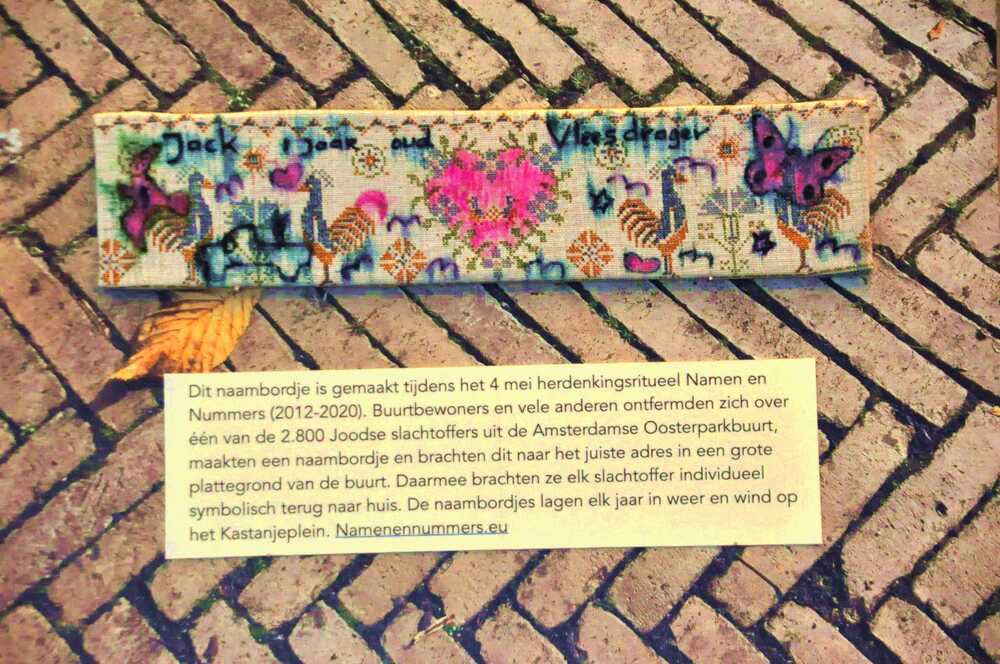 Jack 1 jaar oud Vleesdrager
Dit naambordje is gemaakt tijdens het 4 mei herdenkingsritueel Namen en
Nummers (2012-2020). Buurtbewoners en vele anderen ontfermden zich over
één van de 2.800 Joodse slachtoffers uit de Amsterdamse Oosterparkbuurt,
maakten een naambordje en brachten dit naar het juiste adres in een grote
plattegrond van de buurt. Daarmee brachten ze elk slachtoffer individueel
symbolisch terug naar huis. De naambordjes lagen elk jaar in weer en wind op
het Kastanjeplein. Namenennummers.eu